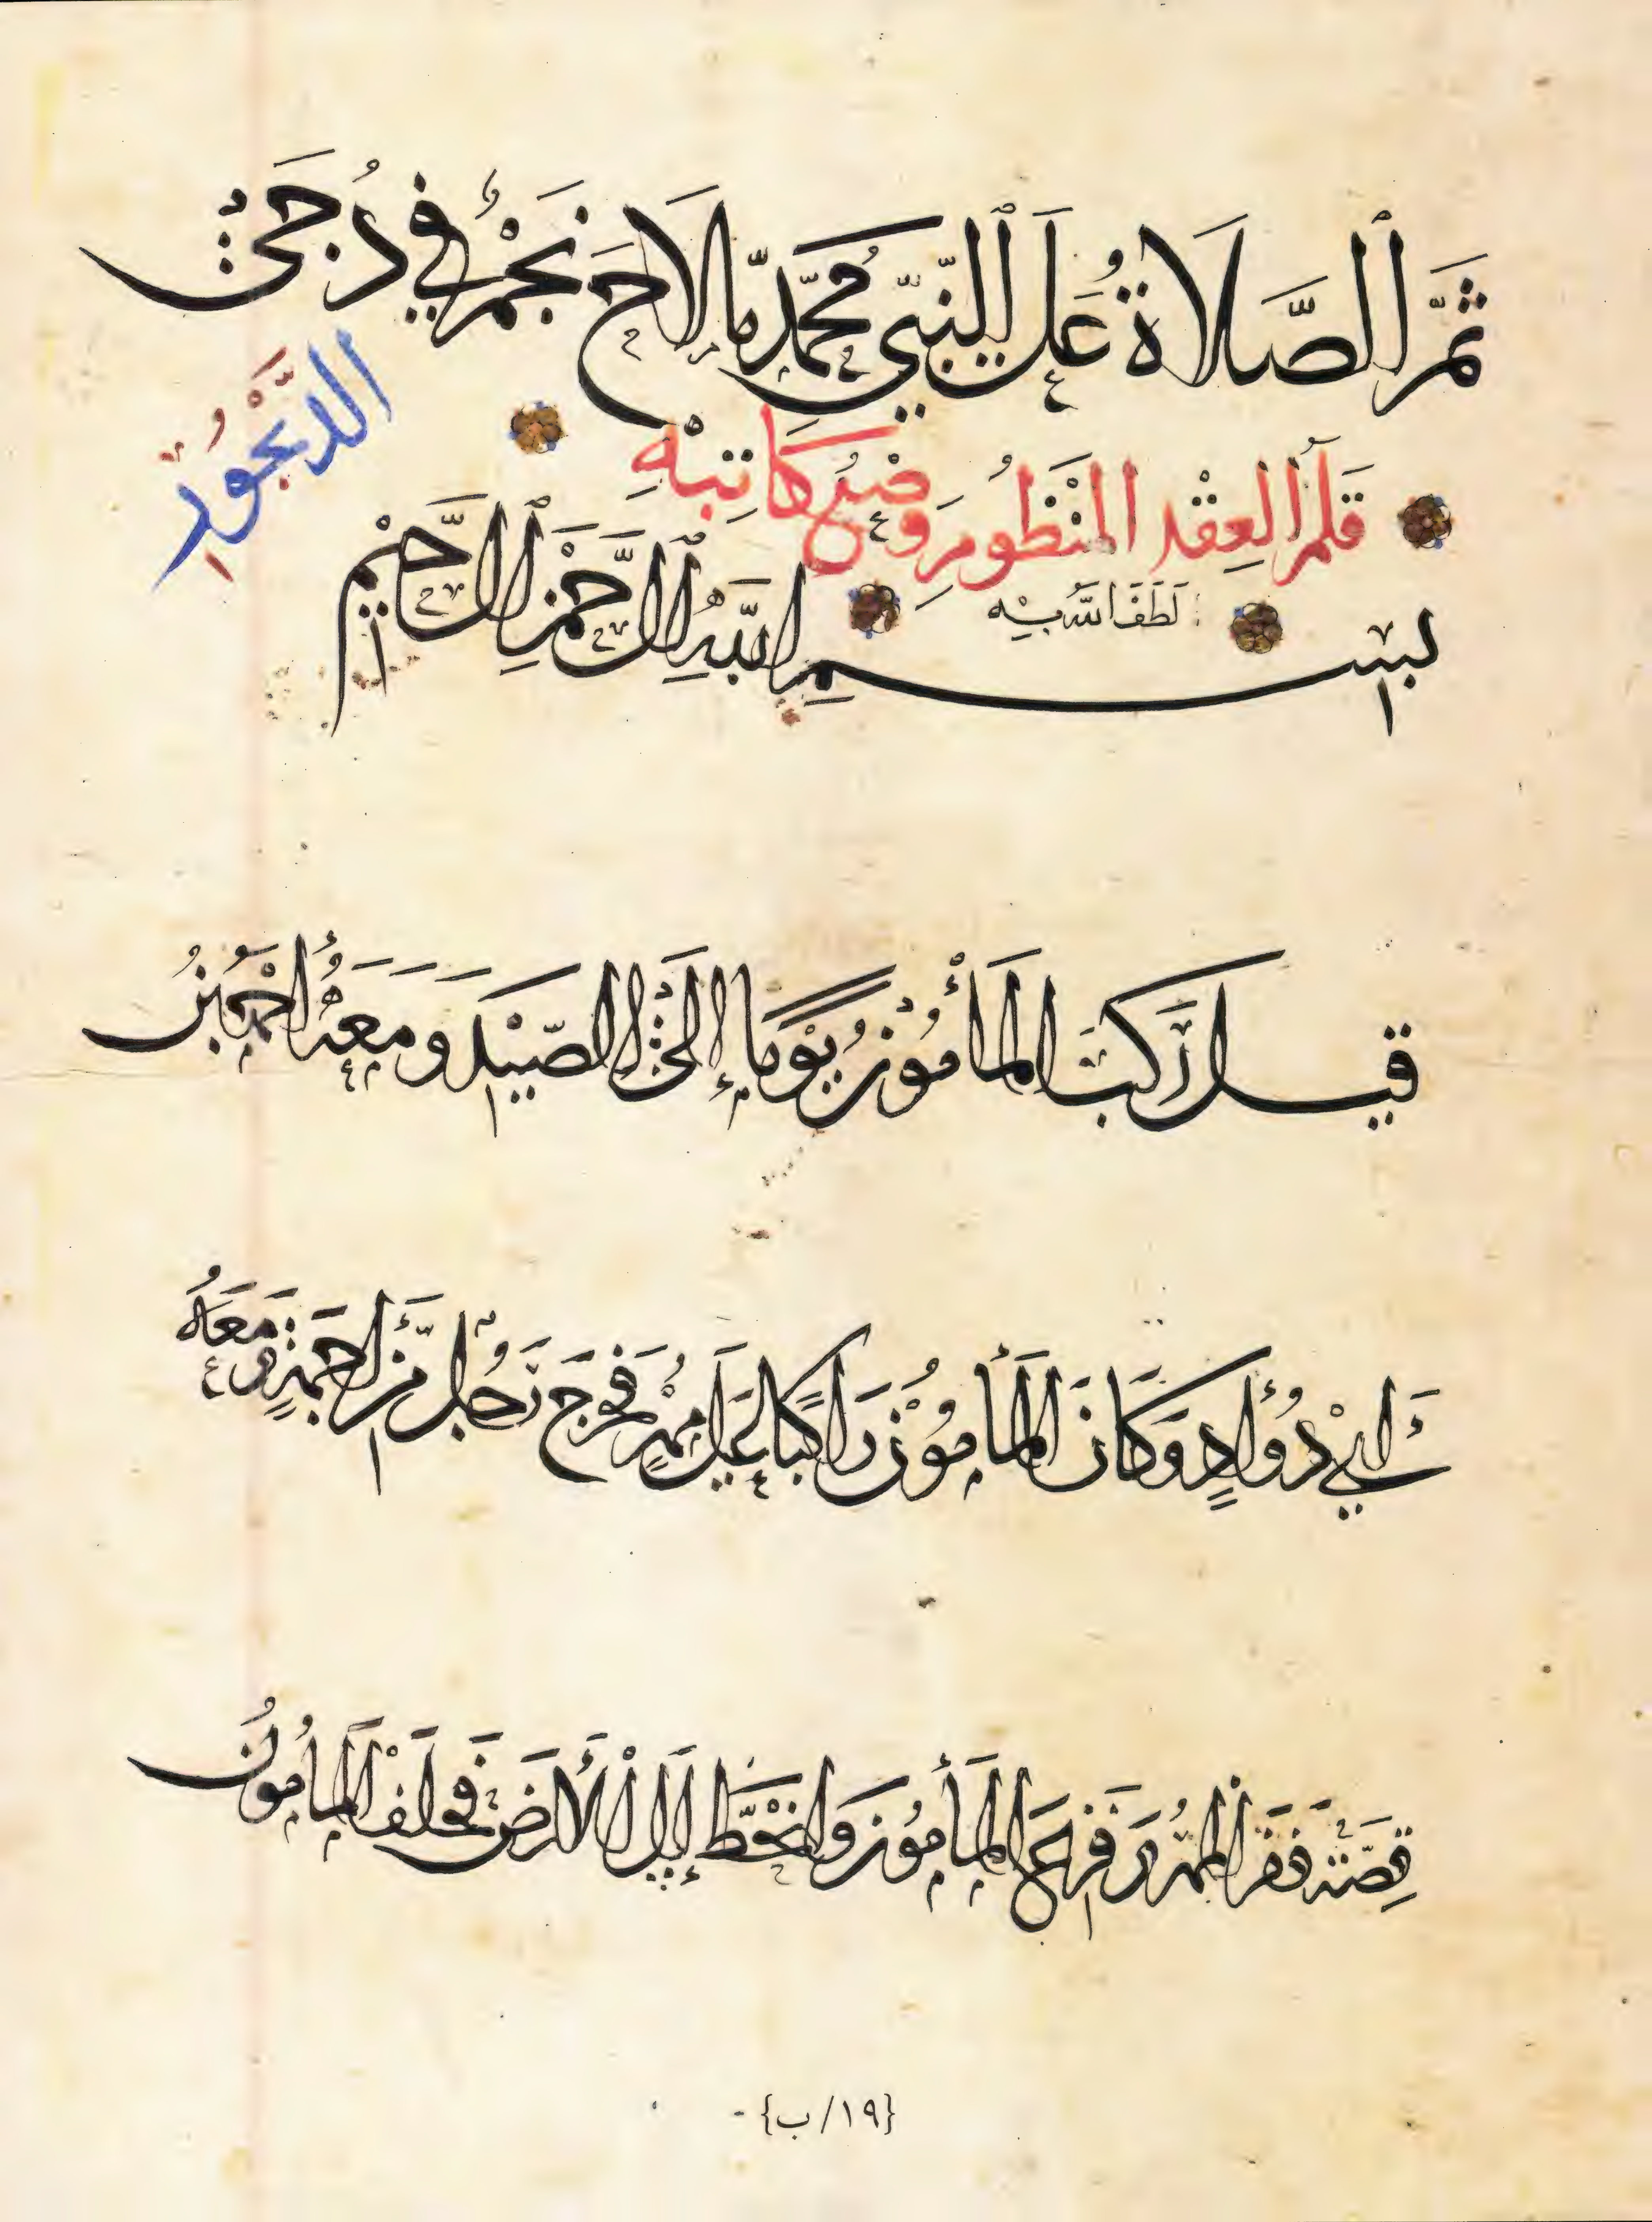 ثُمَّ الصَّلَاةُ عَلَى النَّبِيِّ مُحَمَّدٍ مَا لَاحَ نَجْمٌ فِي دُجَى
الدَّيْجُورِ
قَلَمُ العِقْدِ المَنْظُومِ وَضْعُ كَاتِبِهِ
لَطَفَ اللهُ بِهِ
بسم اللهِ الرَّحْمٰنِ الرَّحِيمِ
قيل رَكِبَ المَأْمُونُ يَوْمًا إِلَى الصَّيْدِ وَمَعَهُ أَحْمَدُ بْنُ
أَبِي دُؤَادٍ وَكَانَ المَأْمُونُ رَاكِبًا عَلَى مُهْرٍ فَخَرَجَ رَجُلٌ مِنْ أَجَمَةٍ وَمَعَهُ
قِصَّةٌ فَنَفَرَ المُهْرُ وَفَزِعَ المَأْمُونُ وَانْحَطَّ إِلَى الْأَرْضِ فَحَلَفَ الْمَأْمُونُ
{١٩/ب}